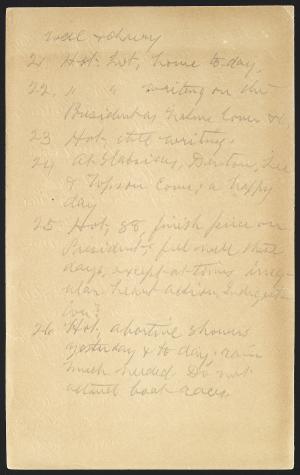 well & cheery
21 Hot, hot, home to day,
22. " " writing on the
Presidents as Nature lover &c.
23 Hot, still writing.
24 At Slabsides, Denton, Lee
& come, a happy
day
25 Hot, 88, finish piece on
President; feel well these
days, except at times irreg-
ular heart action, Indigest-
ion?
26 Hot, abortive showers
yesterday & to day, rain
much needed Do not
attend boat races.